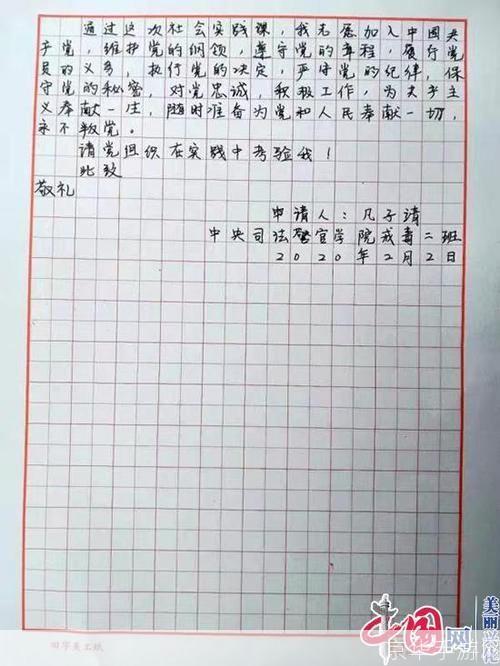 通过这次社会实践课，我志愿加入中国共
产党，维护党的纲领，遵守党的章程，履行党
员的义务，执行党的决定，严守党的纪律，保
守党的秘密，对党忠诚，积极工作，为共产主
义奉献一生，随时准备为党和人民奉献一切，
永不叛党。
请党组织在实践中考验我！
此致
敬礼
申请人：凡子靖
中央司法警官学院戒毒二班
2020年2月2日
田字美工纸
中国网
美丽兴化
京海手游